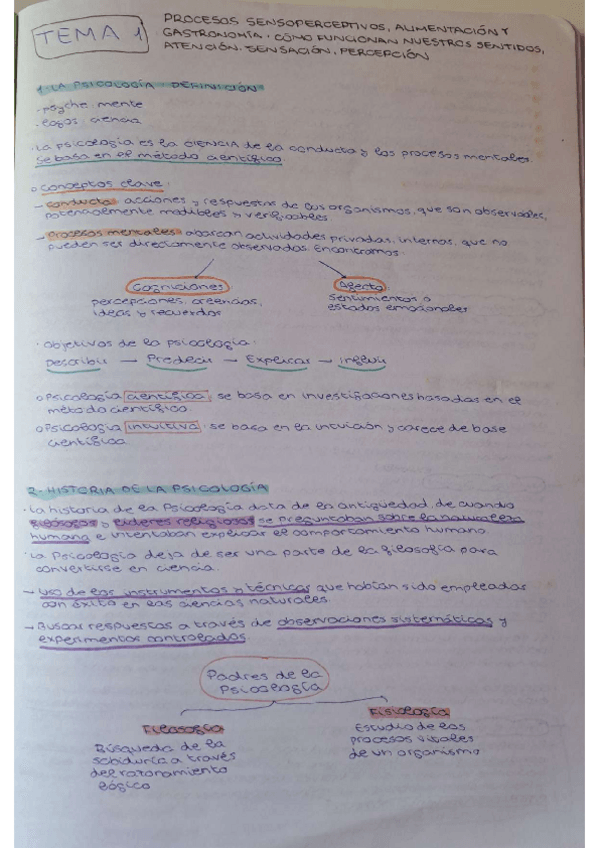 TEMA 1
PROCESOS SENSOPERCEPTIVOS, ALIMENTACIÓN Y
GASTRONOMÍA. CÓMO FUNCIONAN NUESTROS SENTIDOS,
ATENCIÓN. SENSACIÓN, PERCEPCIÓN
1. LA PSICOLOGÍA: DEFINICIÓN
· psyche: mente
· logos: ciencia
· La psicología es la CIENCIA de la conducta y los procesos mentales.
Se basa en el método científico.
o Conceptos clave:
- conducta: acciones y respuestas de los organismos, que son observables,
potencialmente medibles y verificables.
- Procesos mentales: abarcan actividades privadas, internas, que no
pueden ser directamente observadas. Encontramos:
Cogniciones
percepciones, creencias,
ideas y recuerdos
Afecto:
Sentimientos o
estados emocionales
· Objetivos de la psicología:
Describir → Predecir → Explicar → influir
o Psicología científica: se basa en investigaciones basadas en el
método científico.
o Psicología intuitiva: se basa en la intuición y carece de base
científica.
2. HISTORIA DE LA PSICOLOGÍA
· La historia de la Psicología data de la antigüedad, de cuando
filósofos y líderes religiosos se preguntaban sobre la naturaleza
humana e intentaban explicar el comportamiento humano.
· La Psicología deja de ser una parte de la filosofía para
convertirse en ciencia.
→ Uso de los instrumentos y técnicas que habían sido empleadas
con éxito en las ciencias naturales.
→ Buscar respuestas a través de observaciones sistemáticas y
experimentos controlados.
Padres de la
Psicología
Filosofía
Búsqueda de la
sabiduría a través
del razonamiento
lógico
Fisiología
Estudio de los
procesos vitales
de un organismo